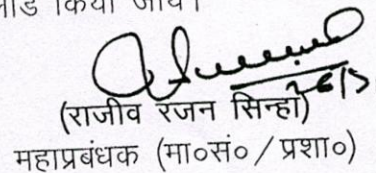 किया जाय।
26/5
(राजीव रंजन सिन्हा)
महाप्रबंधक (मा०सं०/प्रशा०)